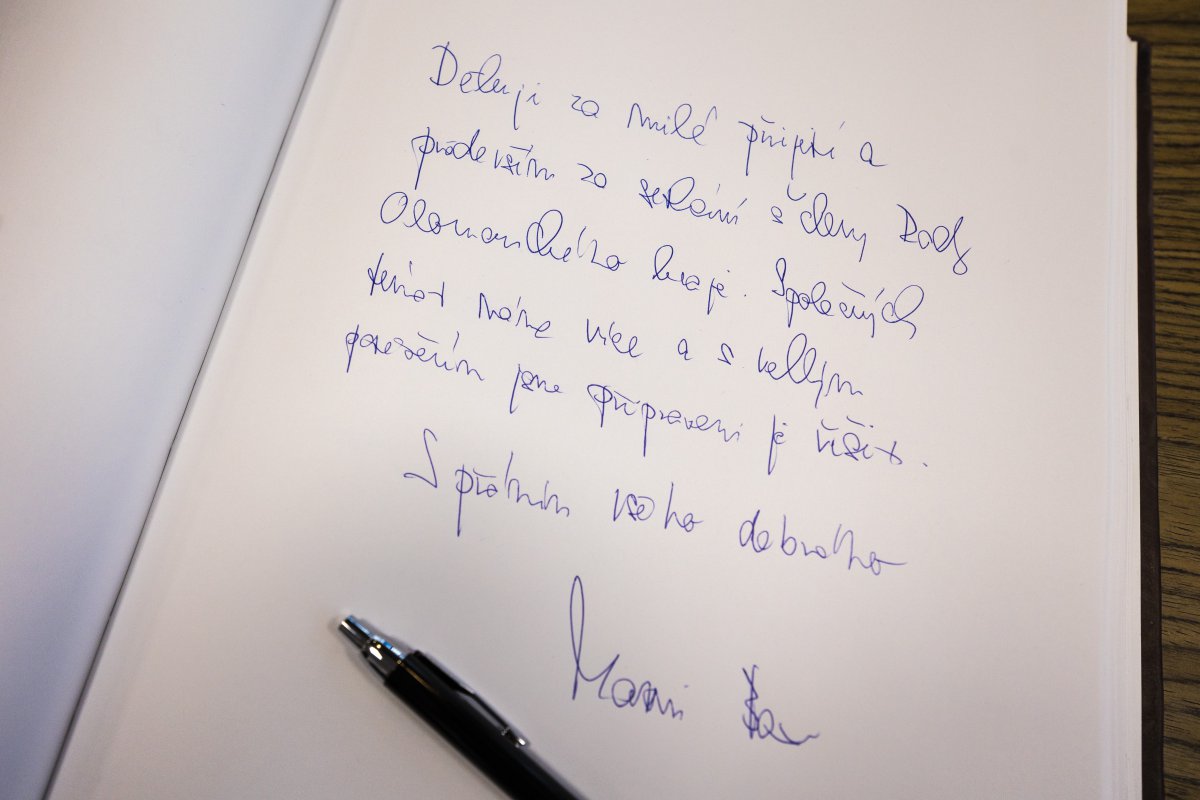 Děkuji za milé přijetí a
především za setkání s členy Rady
Olomouckého kraje. Společných
témat máme více a s velkým
potěšením jsme připraveni je řešit.
S přáním všeho dobrého